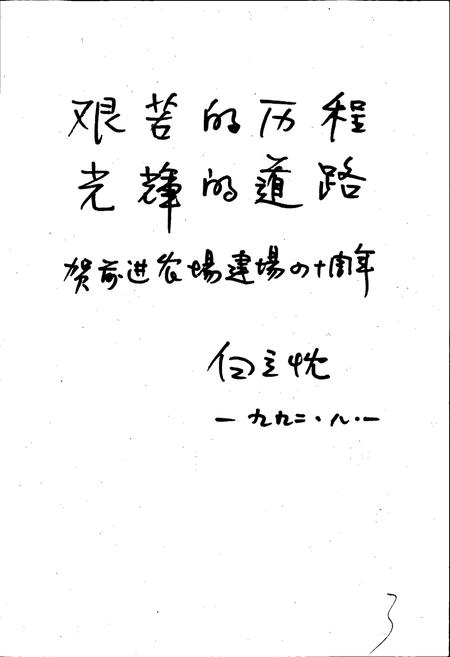 艰苦的历程
光辉的道路
贺前进农場建場四十周年
白立忱
一九九二·八·一
3